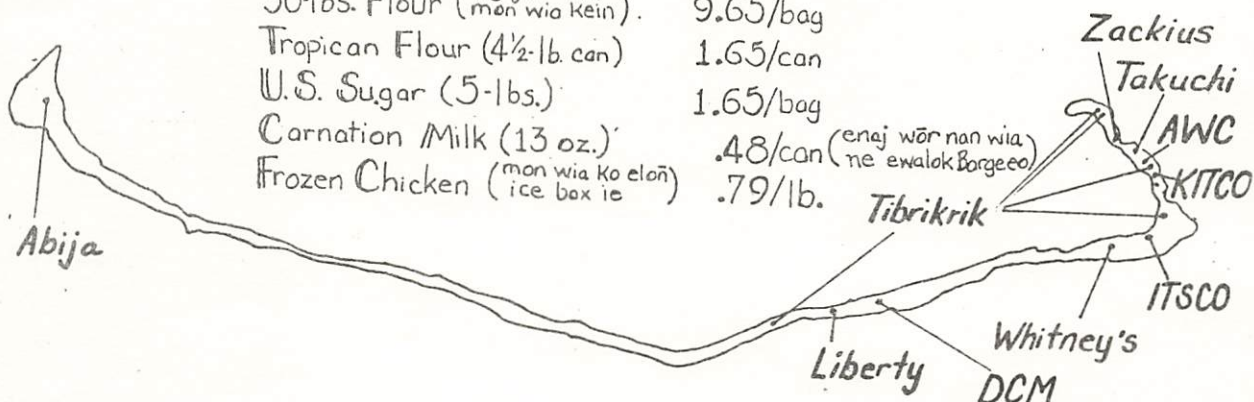 50-lbs. Flour (mon wia kein). 9.65/bag
Tropican Flour (4½-lb. can) 1.65/can
U.S. Sugar (5-lbs.) 1.65/bag
Carnation Milk (13 oz.) .48/can (enaj wōr nan wia ne ewalok Borgeeo)
Frozen Chicken (mon wia ko eloñ ice box ie) .79/lb.
Zackius
Takuchi
AWC
KITCO
Tibrikrik
Abija
ITSCO
Whitney's
Liberty
DCM